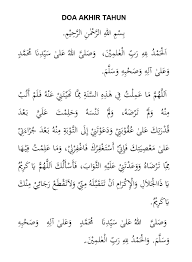 DOA AKHIR TAHUN
بِسْمِ اللهِ الرَّحْمَنِ الرَّحِيْمِ.
اَلْحَمْدُ لِلَّهِ رَبِّ الْعَالَمِيْنَ، وَصَلَّى اللهُ عَلَى سَيِّدِنَا مُحَمَّدٍ
وَعَلَى آلِهِ وَصَحْبِهِ وَسَلَّمَ.
اَللَّهُمَّ مَا عَمِلْتُ فِي هَذِهِ السَّنَةِ مِمَّا نَهَيْتَنِيْ عَنْهُ فَلَمْ أَتُبْ
مِنْهُ وَلَمْ تَرْضَهُ، وَلَمْ تَنْسَهُ وَحَلِمْتَ عَلَيَّ بَعْدَ
قُدْرَتِكَ عَلَى عُقُوْبَتِيْ وَدَعَوْتَنِيْ إِلَى التَّوْبَةِ مِنْهُ بَعْدَ جُرْأَتِيْ
عَلَى مَعْصِيَتِكَ فَإِنِّيْ أَسْتَغْفِرُكَ فَاغْفِرْلِيْ، وَمَا عَمِلْتُ فِيْهَا
مِمَّا تَرْضَاهُ وَوَعَدْتَنِيْ عَلَيْهِ الثَّوَابَ، فَأَسْأَلُكَ اللَّهُمَّ يَا كَرِيْمُ
يَا ذَا الْجَلَالِ وَالْإِكْرَامِ أَنْ تَتَقَبَّلَهُ مِنِّيْ وَلَا تَقْطَعْ رَجَائِيْ مِنْكَ
يَا كَرِيْمُ.
وَصَلَّى اللهُ عَلَى سَيِّدِنَا مُحَمَّدٍ وَعَلَى آلِهِ وَصَحْبِهِ
وَسَلَّمَ. وَالْحَمْدُ لِلَّهِ رَبِّ الْعَالَمِيْنَ.